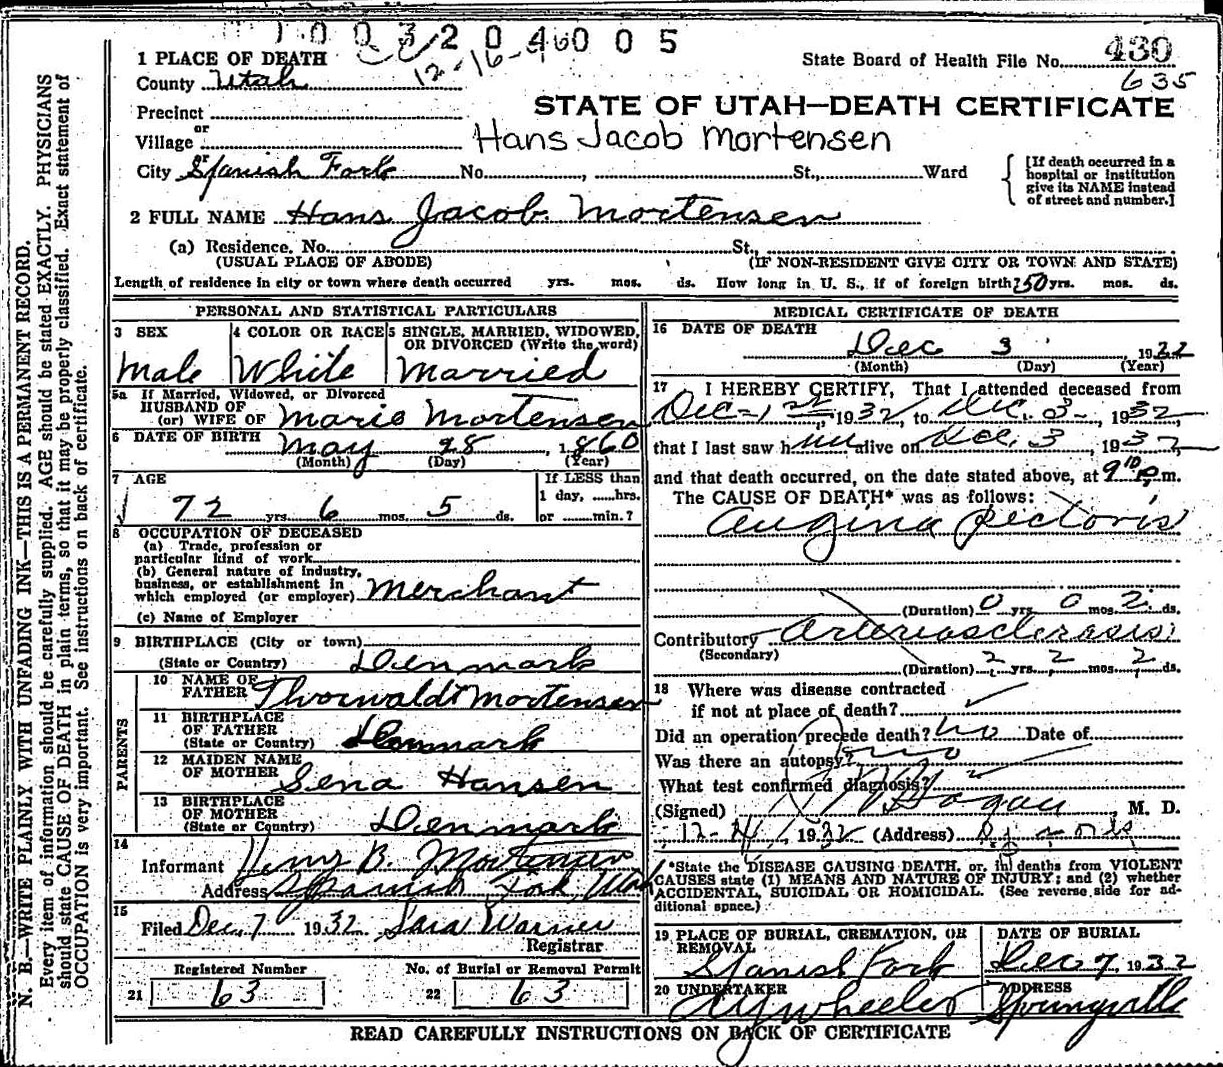 1003204005
12-16-60
1 PLACE OF DEATH
State Board of Health File No. 430
County Utah
635
Precinct
STATE OF UTAH—DEATH CERTIFICATE
or
Village
Hans Jacob Mortensen
City Spanish Fork No. , St., Ward
[If death occurred in a hospital or institution give its NAME instead of street and number.]
2 FULL NAME Hans Jacob Mortensen
(a) Residence. No. St.,
(USUAL PLACE OF ABODE) (IF NON-RESIDENT GIVE CITY OR TOWN AND STATE)
Length of residence in city or town where death occurred yrs. mos. ds. How long in U. S., if of foreign birth? 50 yrs. mos. ds.
PERSONAL AND STATISTICAL PARTICULARS
3 SEX
Male
4 COLOR OR RACE
White
5 SINGLE, MARRIED, WIDOWED,
OR DIVORCED (Write the word)
Married
5a If Married, Widowed, or Divorced
HUSBAND OF
(or) WIFE OF Marie Mortensen
6 DATE OF BIRTH May 28, 1860
(Month) (Day) (Year)
7 AGE
72 yrs. 6 mos. 5 ds.
If LESS than
1 day, ......hrs.
or ........min.?
8 OCCUPATION OF DECEASED
(a) Trade, profession or
particular kind of work
(b) General nature of industry,
business, or establishment in
which employed (or employer) Merchant
(c) Name of Employer
9 BIRTHPLACE (City or town)
(State or Country) Denmark
PARENTS
10 NAME OF
FATHER Thorwaldt Mortensen
11 BIRTHPLACE
OF FATHER
(State or Country) Denmark
12 MAIDEN NAME
OF MOTHER Sena Hansen
13 BIRTHPLACE
OF MOTHER
(State or Country) Denmark
14
Informant Henry B. Mortensen
Address Spanish Fork, Utah
15
Filed Dec 7 1932 Sara Warner
Registrar
Registered Number
21 63
No. of Burial or Removal Permit
22 63
MEDICAL CERTIFICATE OF DEATH
16 DATE OF DEATH
Dec 3, 1932
(Month) (Day) (Year)
17 I HEREBY CERTIFY, That I attended deceased from
Dec-1st, 1932, to Dec. 3-, 1932,
that I last saw him alive on Dec. 3, 1932,
and that death occurred, on the date stated above, at 9 10 p.m.
The CAUSE OF DEATH* was as follows:
Angina Pectoris
(Duration) 0 yrs. 0 mos. 2 ds.
Contributory Arteriosclerosis
(Secondary)
(Duration) 2 yrs. 2 mos. 2 ds.
18 Where was disease contracted
if not at place of death?
Did an operation precede death? no Date of
Was there an autopsy? no
What test confirmed diagnosis?
(Signed) Hagan, M. D.
12-4, 1932 (Address)
*State the DISEASE CAUSING DEATH, or, in deaths from VIOLENT
CAUSES state (1) MEANS AND NATURE OF INJURY; and (2) whether
ACCIDENTAL, SUICIDAL OR HOMICIDAL. (See reverse side for ad-
ditional space.)
19 PLACE OF BURIAL, CREMATION, OR
REMOVAL
Spanish Fork
DATE OF BURIAL
Dec 7, 1932
20 UNDERTAKER
A Y Wheeler
ADDRESS
Springville
READ CAREFULLY INSTRUCTIONS ON BACK OF CERTIFICATE
N. B.—WRITE PLAINLY WITH UNFADING INK—THIS IS A PERMANENT RECORD.
Every item of information should be carefully supplied. AGE should be stated EXACTLY. PHYSICIANS
should state CAUSE OF DEATH in plain terms, so that it may be properly classified. Exact statement of
OCCUPATION is very important. See instructions on back of certificate.